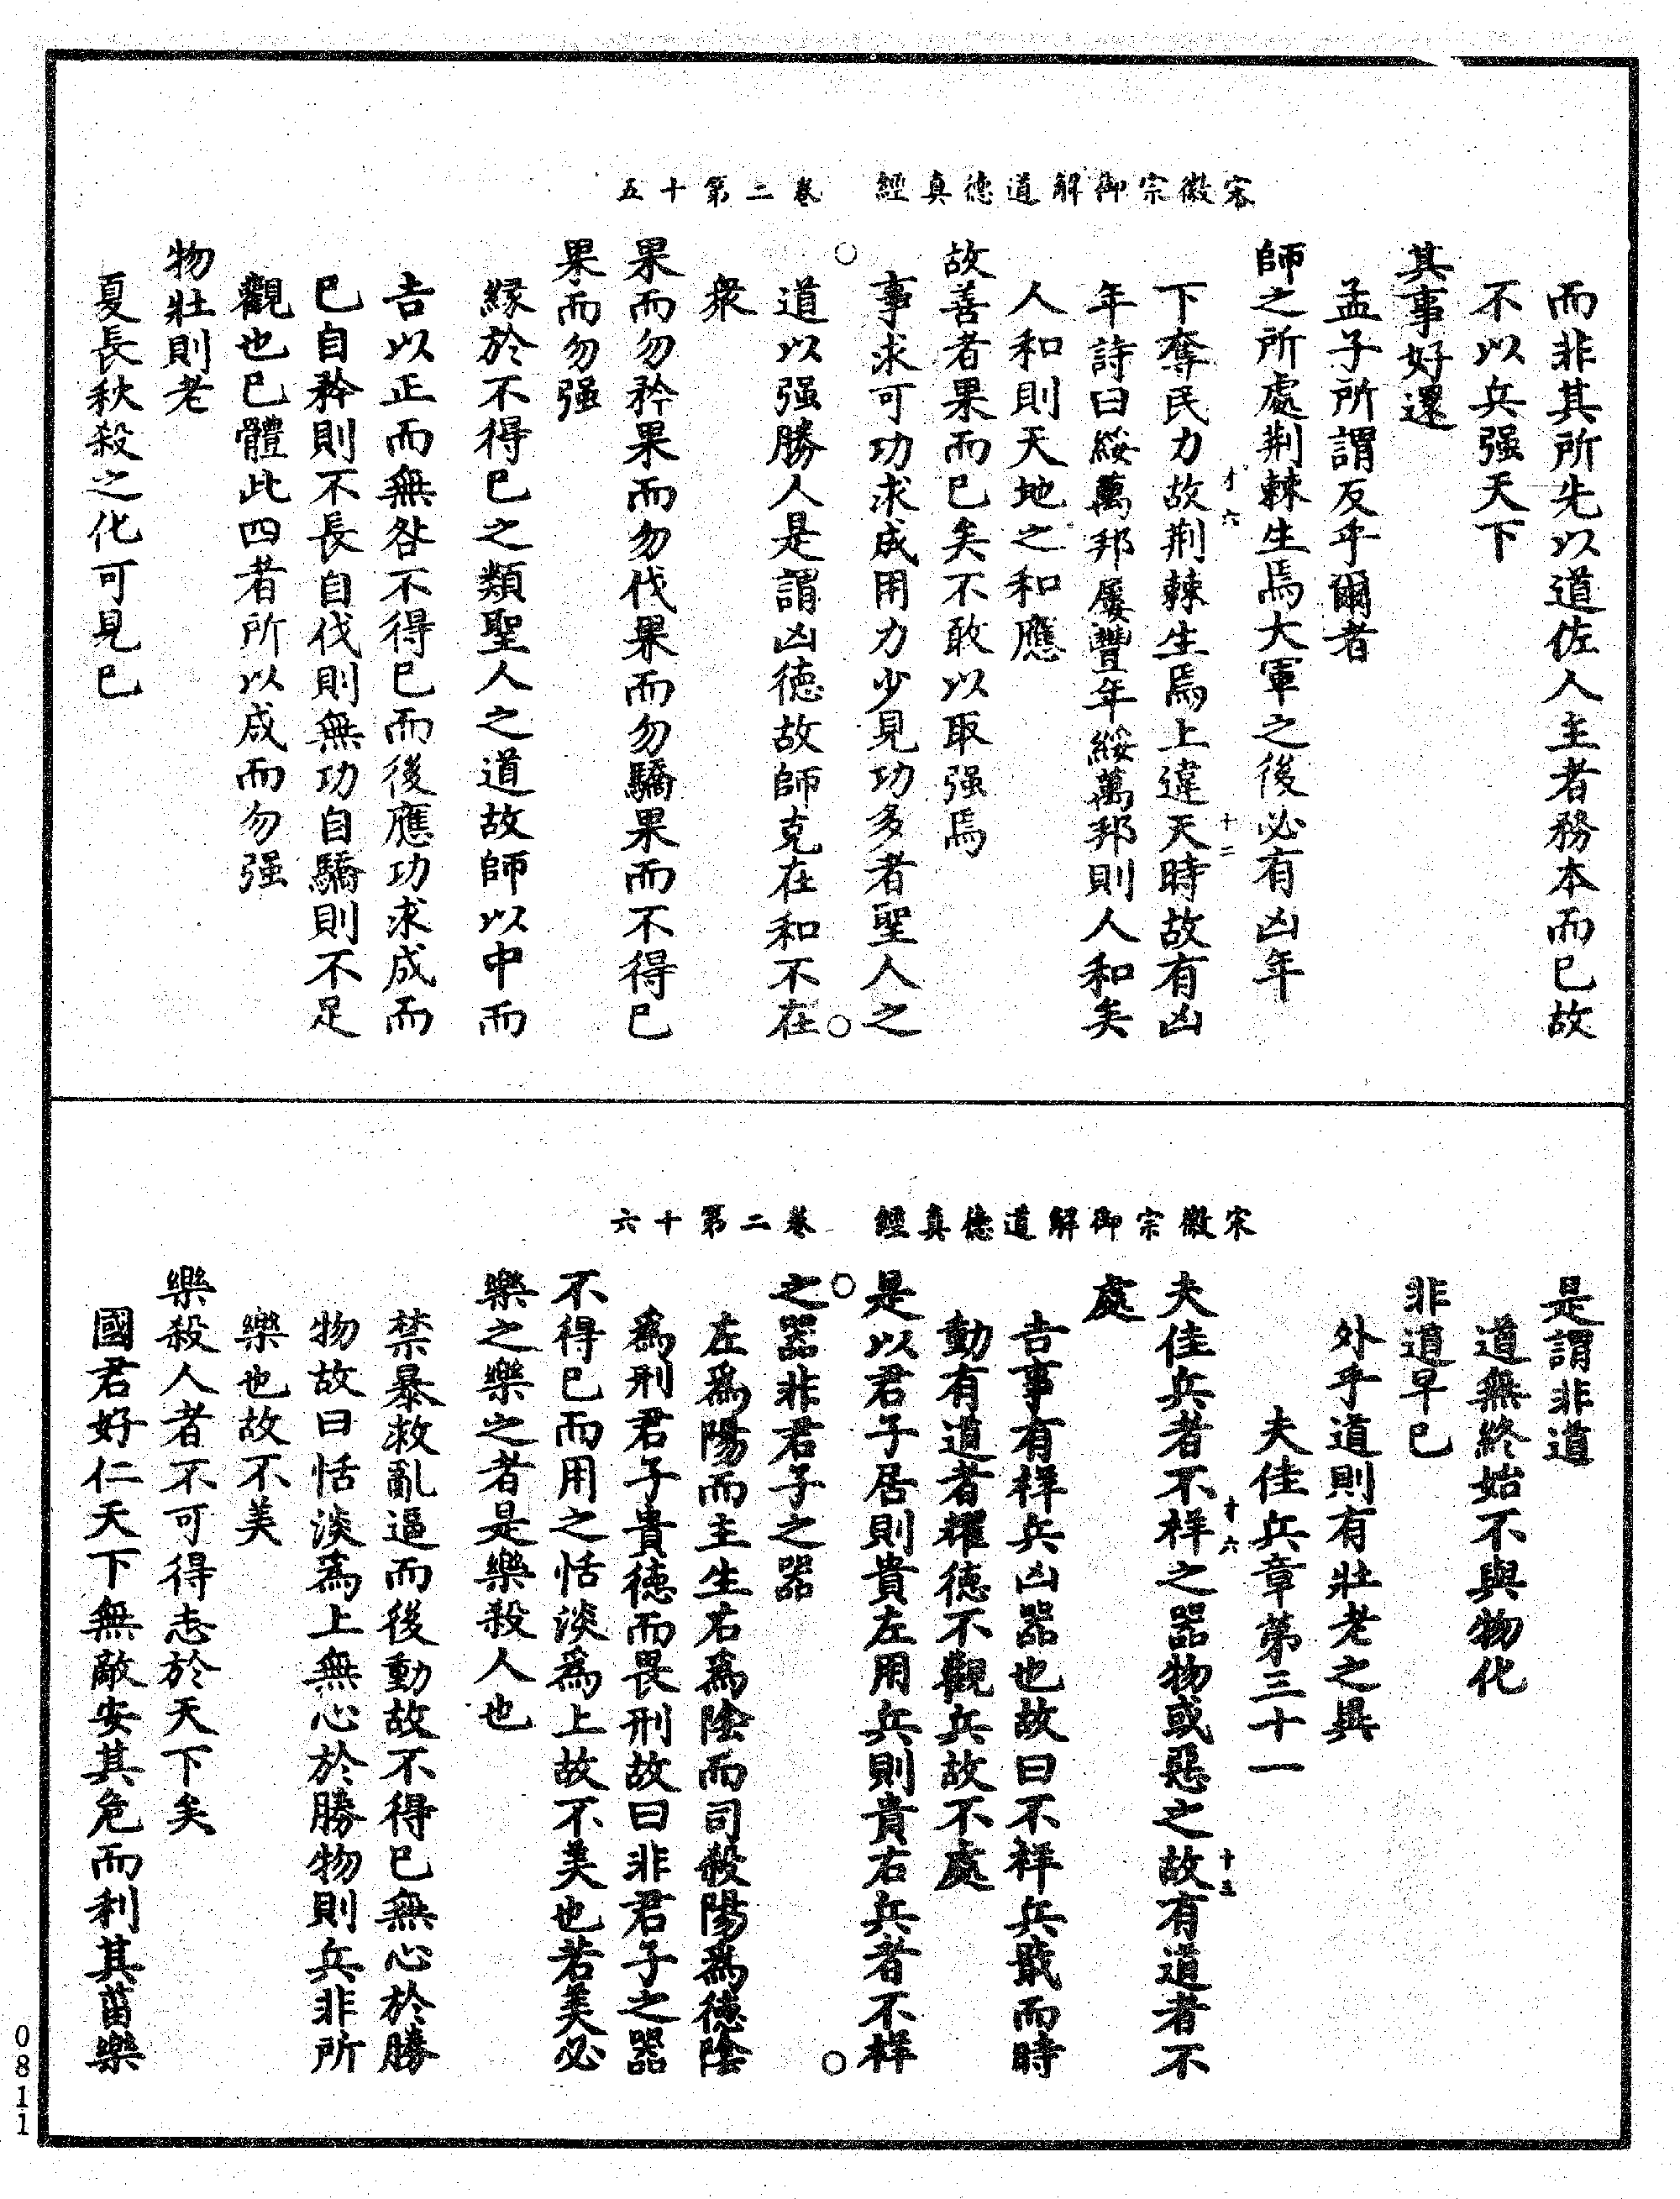 宋徽宗御解道德真經　卷二第十五
而非其所先以道佐人主者務本而已故
不以兵强天下
其事好還
孟子所謂反乎爾者
師之所處荆棘生焉大軍之後必有凶年
才六
十二
下奪民力故荆棘生焉上違天時故有凶
年詩曰綏萬邦屢豐年綏萬邦則人和矣
人和則天地之和應
故善者果而已矣不敢以取强焉
事求可功求成用力少見功多者聖人之
道以强勝人是謂凶德故師克在和不在
衆
果而勿矜果而勿伐果而勿驕果而不得已
果而勿强
緣於不得已之類聖人之道故師以中而
吉以正而無咎不得已而後應功求成而
已自矜則不長自伐則無功自驕則不足
觀也已體此四者所以成而勿强
物壯則老
夏長秋殺之化可見已
宋徽宗御解道德真經　卷二第十六
是謂非道
道無終始不與物化
非道早已
外乎道則有壯老之異
夫佳兵章第三十一
十六
十三
夫佳兵者不祥之器物或惡之故有道者不
處
吉事有祥兵凶器也故曰不祥兵戢而時
動有道者耀德不觀兵故不處
是以君子居則貴左用兵則貴右兵者不祥
之器非君子之器
左爲陽而主生右爲陰而司殺陽爲德陰
爲刑君子貴德而畏刑故曰非君子之器
不得已而用之恬淡爲上故不美也若美必
樂之樂之者是樂殺人也
禁暴救亂逼而後動故不得已無心於勝
物故曰恬淡爲上無心於勝物則兵非所
樂也故不美
樂殺人者不可得志於天下矣
國君好仁天下無敵安其危而利其菑樂
0811